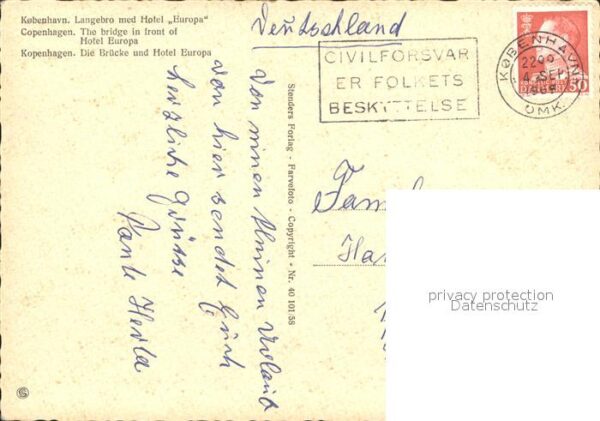 København. Langebro med Hotel „Europa“
Copenhagen. The bridge in front of
Hotel Europa
Kopenhagen. Die Brücke und Hotel Europa
Deutschland
CIVILFORSVAR
ER FOLKETS
BESKYTTELSE
KØBENHAVN
2200
4 SEP
OMK.
50
Von einen kleinen Urlaub
von hier sendet Euch
herzliche Grüsse
Tante Herta
Stenders Forlag - Farvefoto - Copyright - Nr. 40 101 58
Fam
Ha
privacy protection
Datenschutz